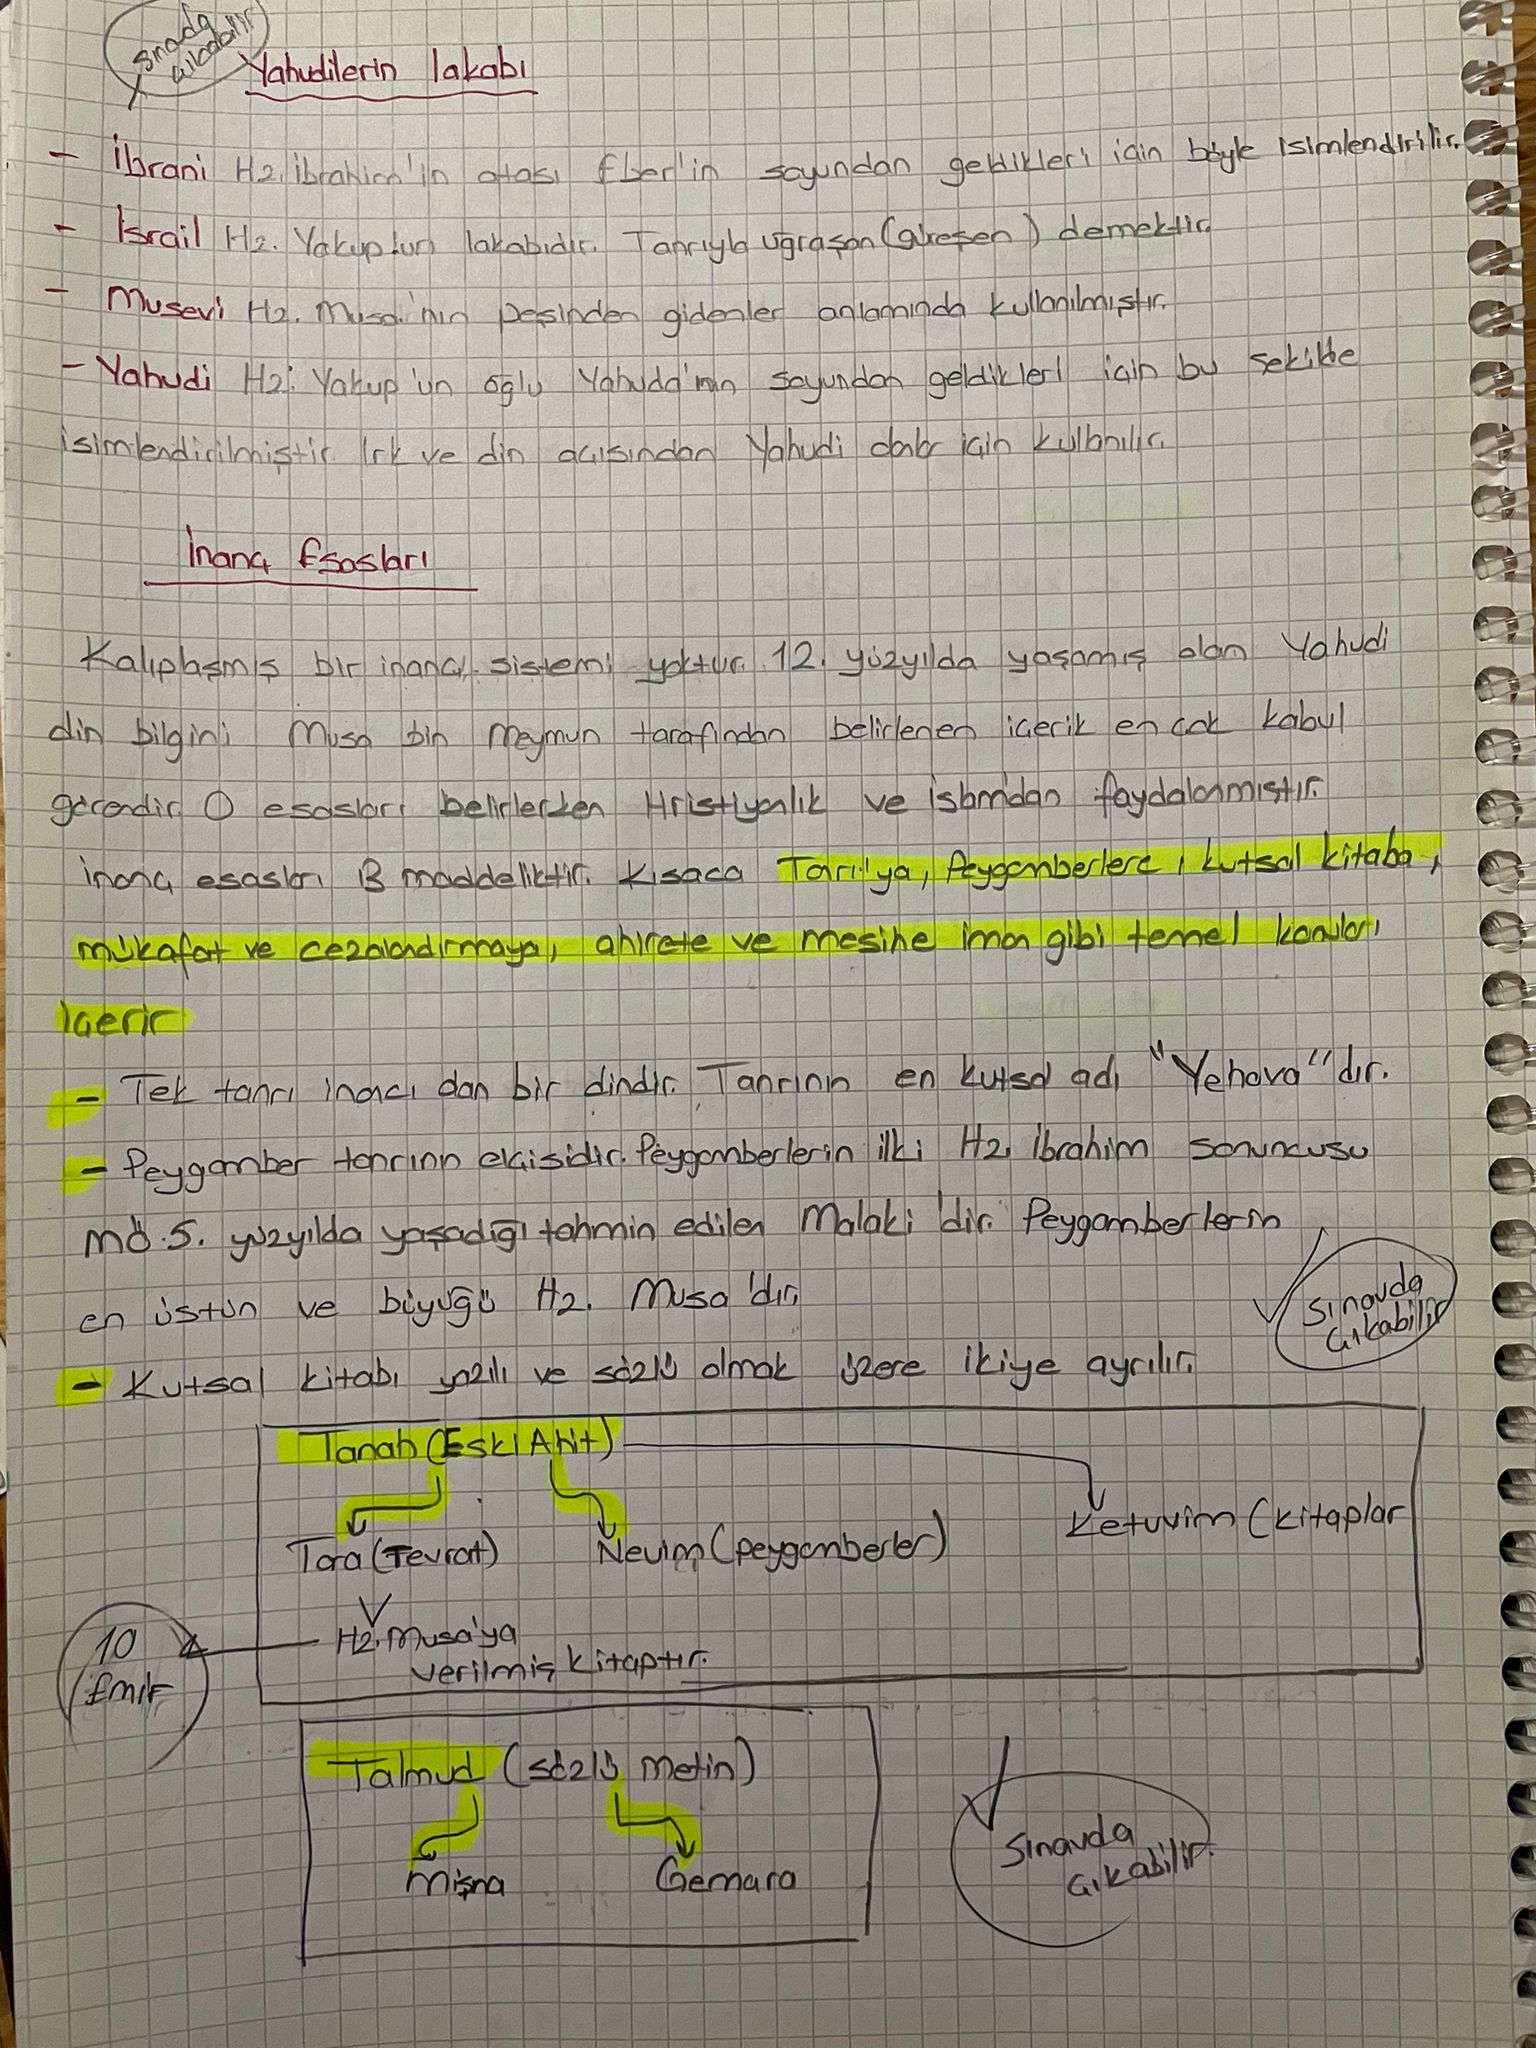 Sınavda
çıkabilir
Yahudilerin lakabı
- İbrani Hz. İbrahim'in atası Eber'in soyundan geldikleri için böyle isimlendirilir.
- İsrail Hz. Yakup'un lakabıdır. Tanrıyla uğraşan (güreşen) demektir.
- Musevi Hz. Musa'nın peşinden gidenler anlamında kullanılmıştır.
- Yahudi Hz. Yakup'un oğlu Yahuda'nın soyundan geldikleri için bu şekilde
isimlendirilmiştir. Irk ve din açısından Yahudi olanlar için kullanılır.
İnanç Esasları
Kalıplaşmış bir inanç sistemi yoktur. 12. yüzyılda yaşamış olan Yahudi
din bilgini Musa bin Meymun tarafından belirlenen içerik en çok kabul
görendir. O esasları belirlerken Hristiyanlık ve İslam'dan faydalanmıştır.
inanç esasları 13 maddeliktir. Kısaca Tanrı'ya, Peygamberlere, kutsal kitaba,
mükafat ve cezalandırmaya, ahirete ve mesihe iman gibi temel konuları
içerir
- Tek tanrı inancı olan bir dindir. Tanrının en kutsal adı "Yehova"dır.
- Peygamber tanrının elçisidir. Peygamberlerin ilki Hz. İbrahim sonuncusu
MÖ. 5. yüzyılda yaşadığı tahmin edilen Malaki'dir. Peygamberlerin
en üstün ve büyüğü Hz. Musa'dır.
Sınavda
çıkabilir
- Kutsal kitabı yazılı ve sözlü olmak üzere ikiye ayrılır.
Tanah (Eski Ahit)
Tora (Tevrat) Neviim (peygamberler) Ketuvim (kitaplar
Hz. Musa'ya
verilmiş kitaptır.
10
Emir
Talmud (sözlü metin)
Mişna Gemara
Sınavda
çıkabilir.